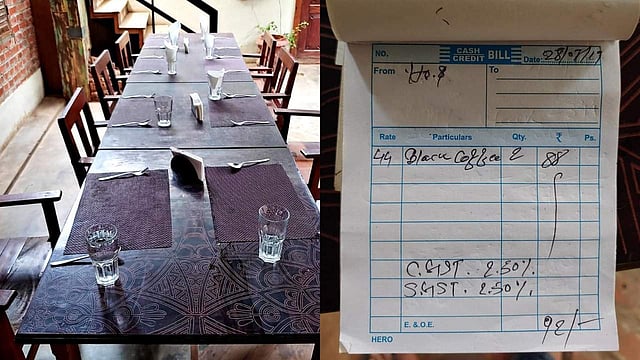 NO. CASH CREDIT BILL Date 28/07/17
From To
Rate Particulars Qty. ₹ Ps.
44 Black Coffee 2 88
C.GST. 2.50%.
S.GST. 2.50%.
E. & O.E. 92/-
HERO